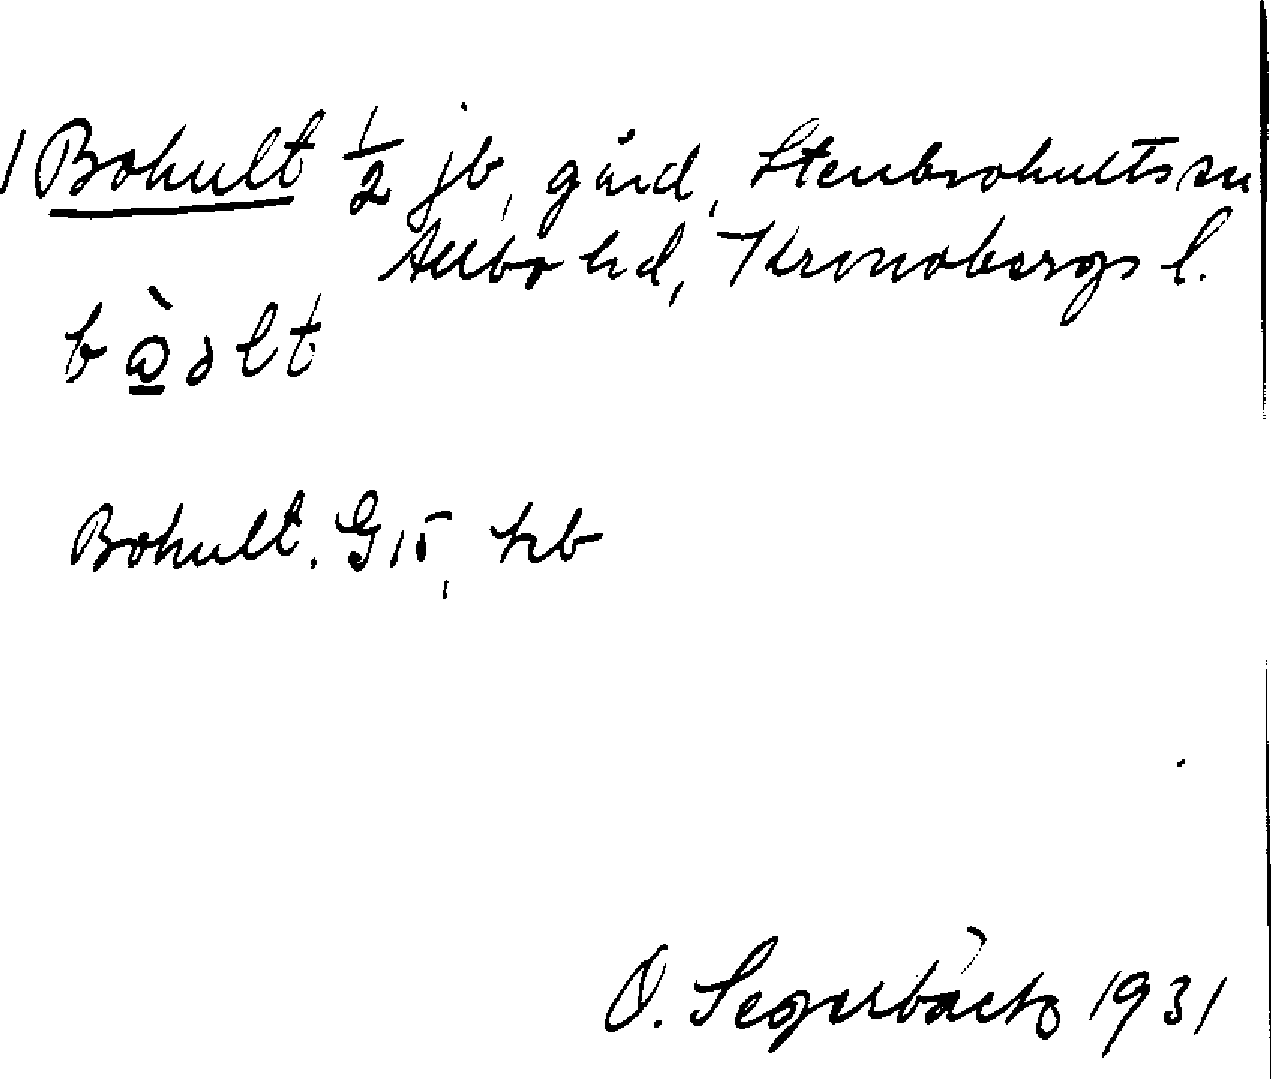 1 Bohult ½ jb, gård, Stenbrohults sn
Allbo hd, Kronobergs l.
Bohult. G 15, hb
O. Segerbäck 1931